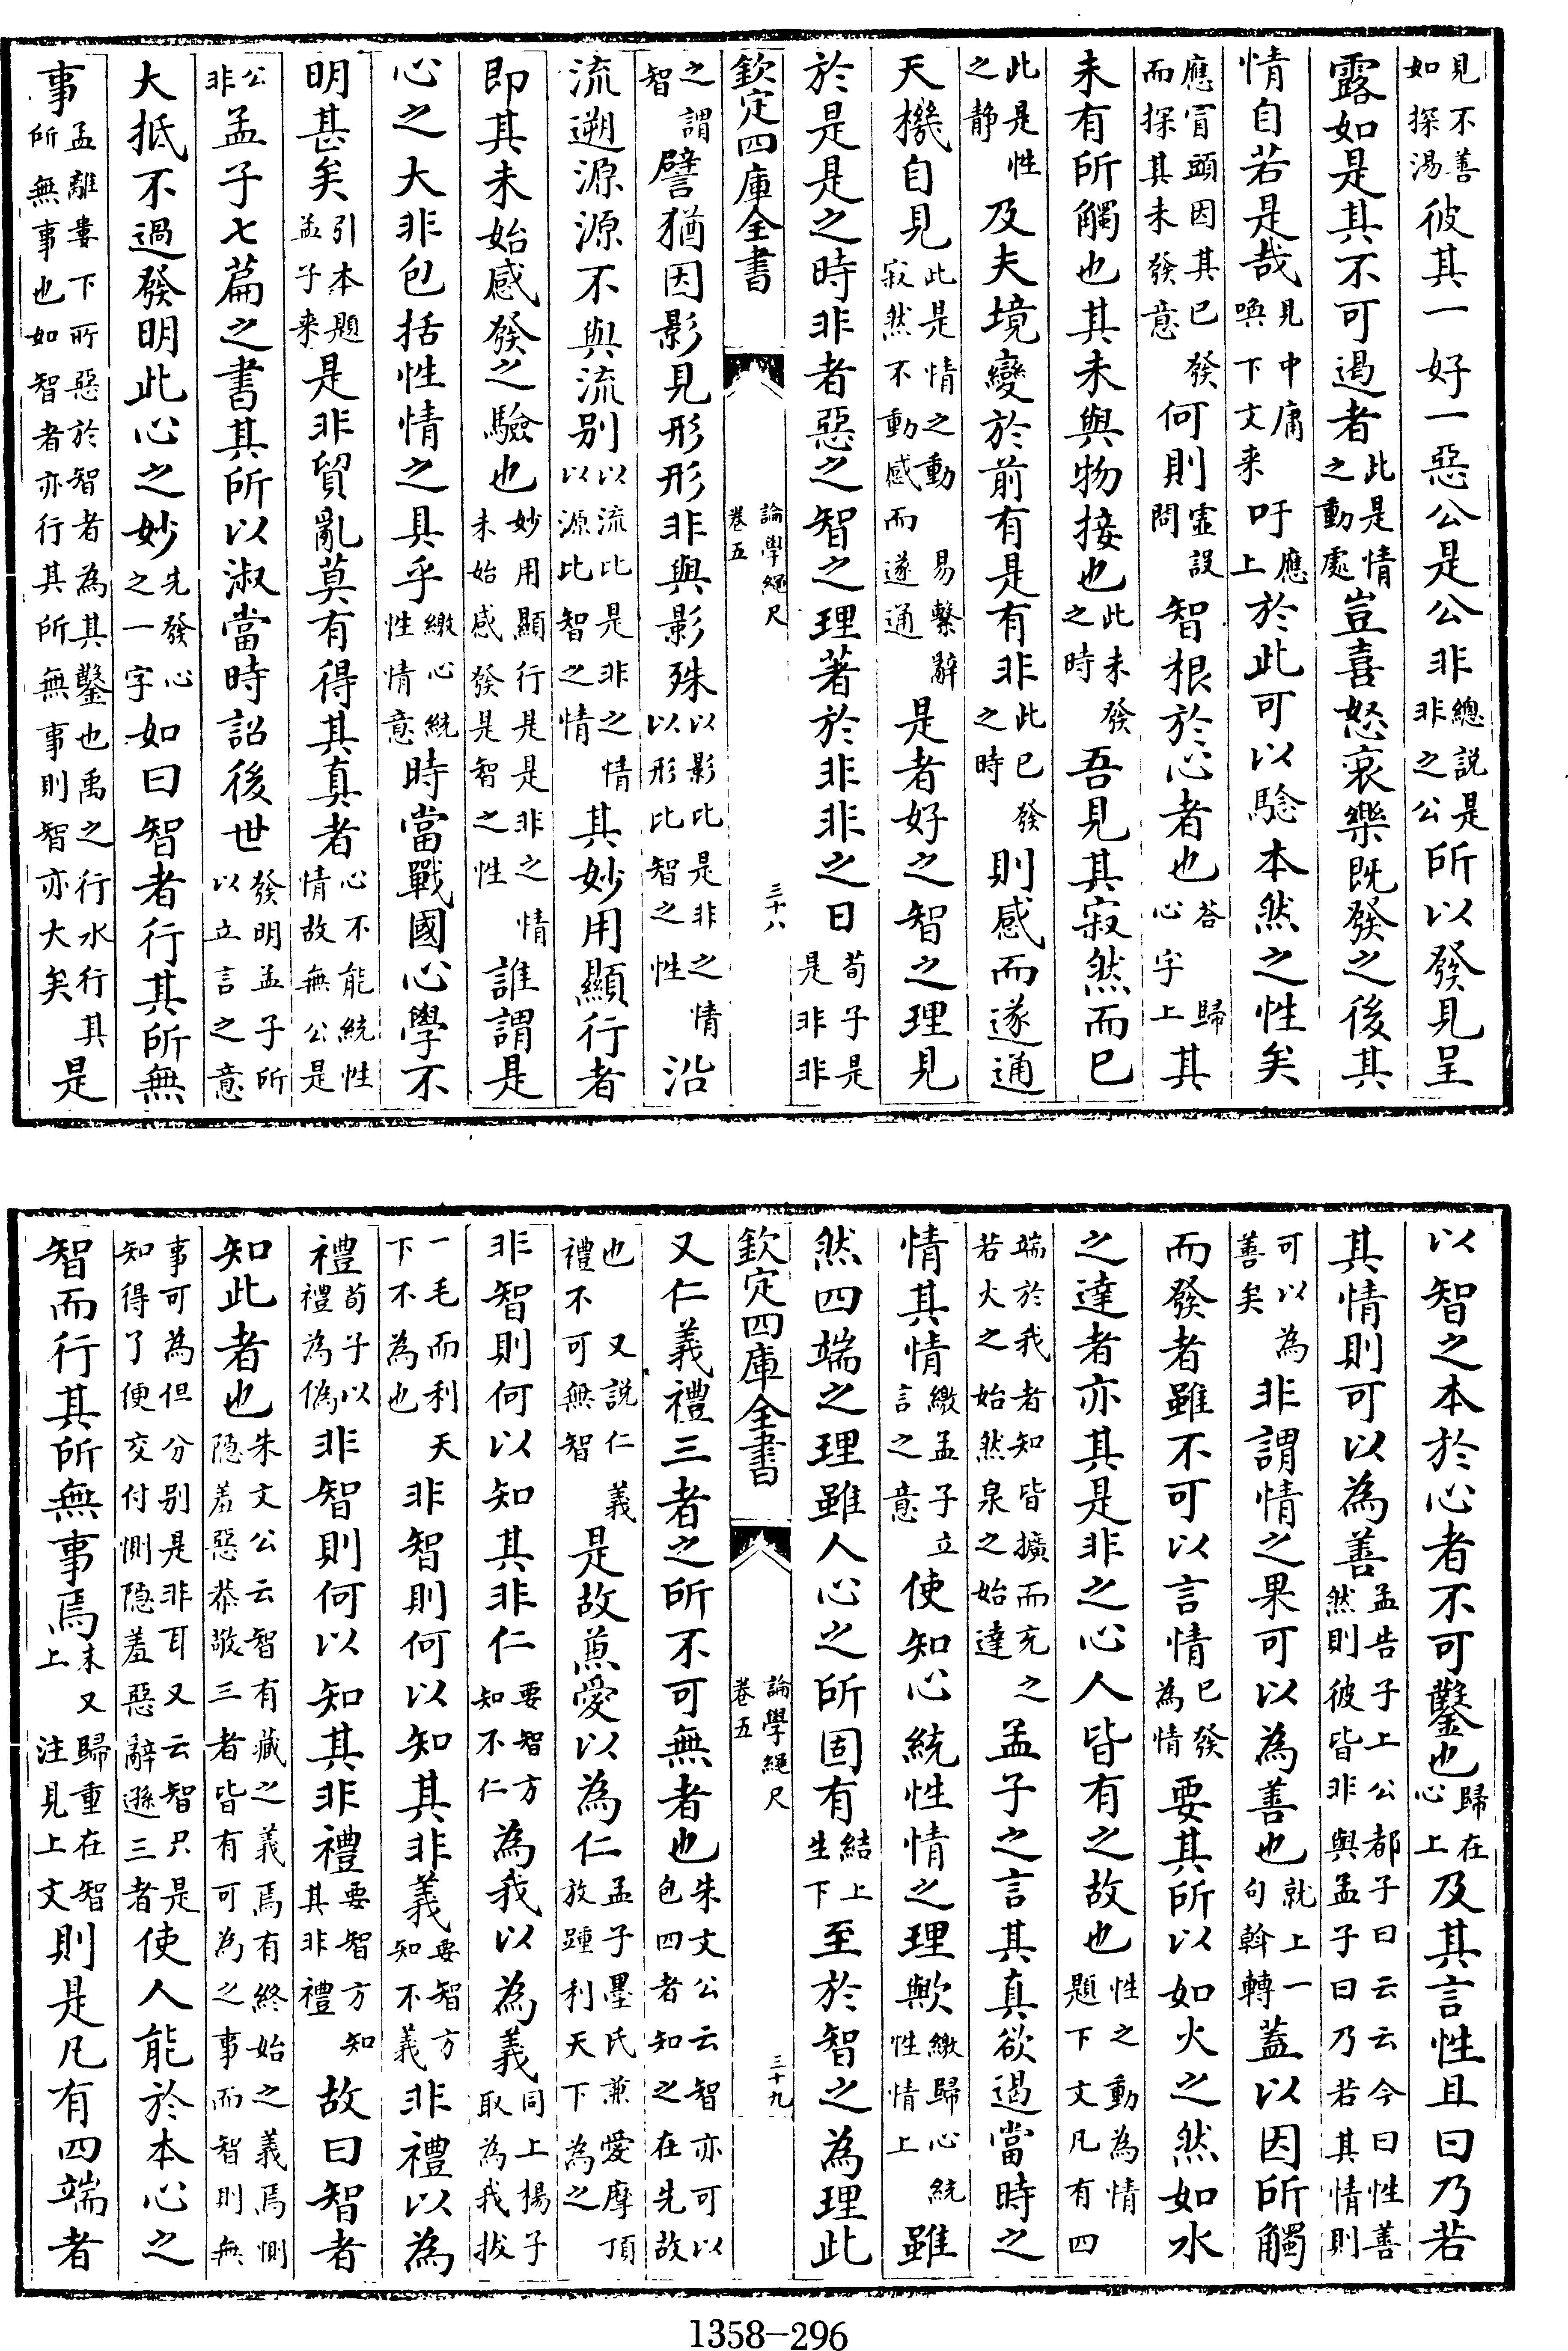 見不善如探湯彼其一好一惡公是公非總說是非之公所以發見呈
露如是其不可遏者此是情之動處豈喜怒哀樂既發之後其
情自若是哉見中庸喚下文来吁應上於此可以驗本然之性矣
應冒頭因其已發而探其未發意何則虛設問智根於心者也答歸心字上其
未有所觸也其未與物接也此未發之時吾見其寂然而已
此是性之静及夫境變於前有是有非此已發之時則感而遂通
天機自見此是情之動易繫辭寂然不動感而遂通是者好之智之理見
於是是之時非者惡之智之理著於非非之日荀子是是非非
欽定四庫全書 論學繩尺卷五 三十八
之謂智譬猶因影見形形非與影殊以影比是非之情以形比智之性沿
流遡源源不與流别以流比是非之情以源比智之情其妙用顯行者
即其未始感發之驗也妙用顯行是是非之情未始感發是智之性誰謂是
心之大非包括性情之具乎繳心統性情意時當戰國心學不
明甚矣引本題孟子来是非貿亂莫有得其真者心不能統性情故無公是
公非孟子七篇之書其所以淑當時詔後世發明孟子所以立言之意
大抵不過發明此心之妙先發心之一字如曰智者行其所無
事孟離婁下所惡於智者為其鑿也禹之行水行其所無事也如智者亦行其所無事則智亦大矣是
以智之本於心者不可鑿也歸在心上及其言性且曰乃若
其情則可以為善孟告子上公都子曰云云今曰性善然則彼皆非與孟子曰乃若其情則
可以為善矣非謂情之果可以為善也就上一句斡轉蓋以因所觸
而發者雖不可以言情已發為情要其所以如火之然如水
之達者亦其是非之心人皆有之故也性之動為情題下文凡有四
端於我者知皆擴而充之若火之始然泉之始達孟子之言其真欲遏當時之
情其情繳孟子立言之意使知心統性情之理歟繳歸心統性情上雖
然四端之理雖人心之所固有結上生下至於智之為理此
欽定四庫全書 論學繩尺卷五 三十九
又仁義禮三者之所不可無者也朱文公云智亦可以包四者知之在先故
也又說仁義禮不可無智是故兼愛以為仁孟子墨氏兼愛摩頂放踵利天下為之
非智則何以知其非仁要智方知不仁為我以為義同上楊子取為我拔
一毛而利天下不為也非智則何以知其非義要智方知不義非禮以為
禮荀子以禮為偽非智則何以知其非禮要智方知其非禮故曰智者
知此者也朱文公云智有藏之義焉有終始之義焉惻隐羞惡恭敬三者皆有可為之事而智則無
事可為但分别是非耳又云智只是知得了便交付惻隐羞惡辭遜三者使人能於本心之
智而行其所無事焉末又歸重在智上注見上文則是凡有四端者
1358-296